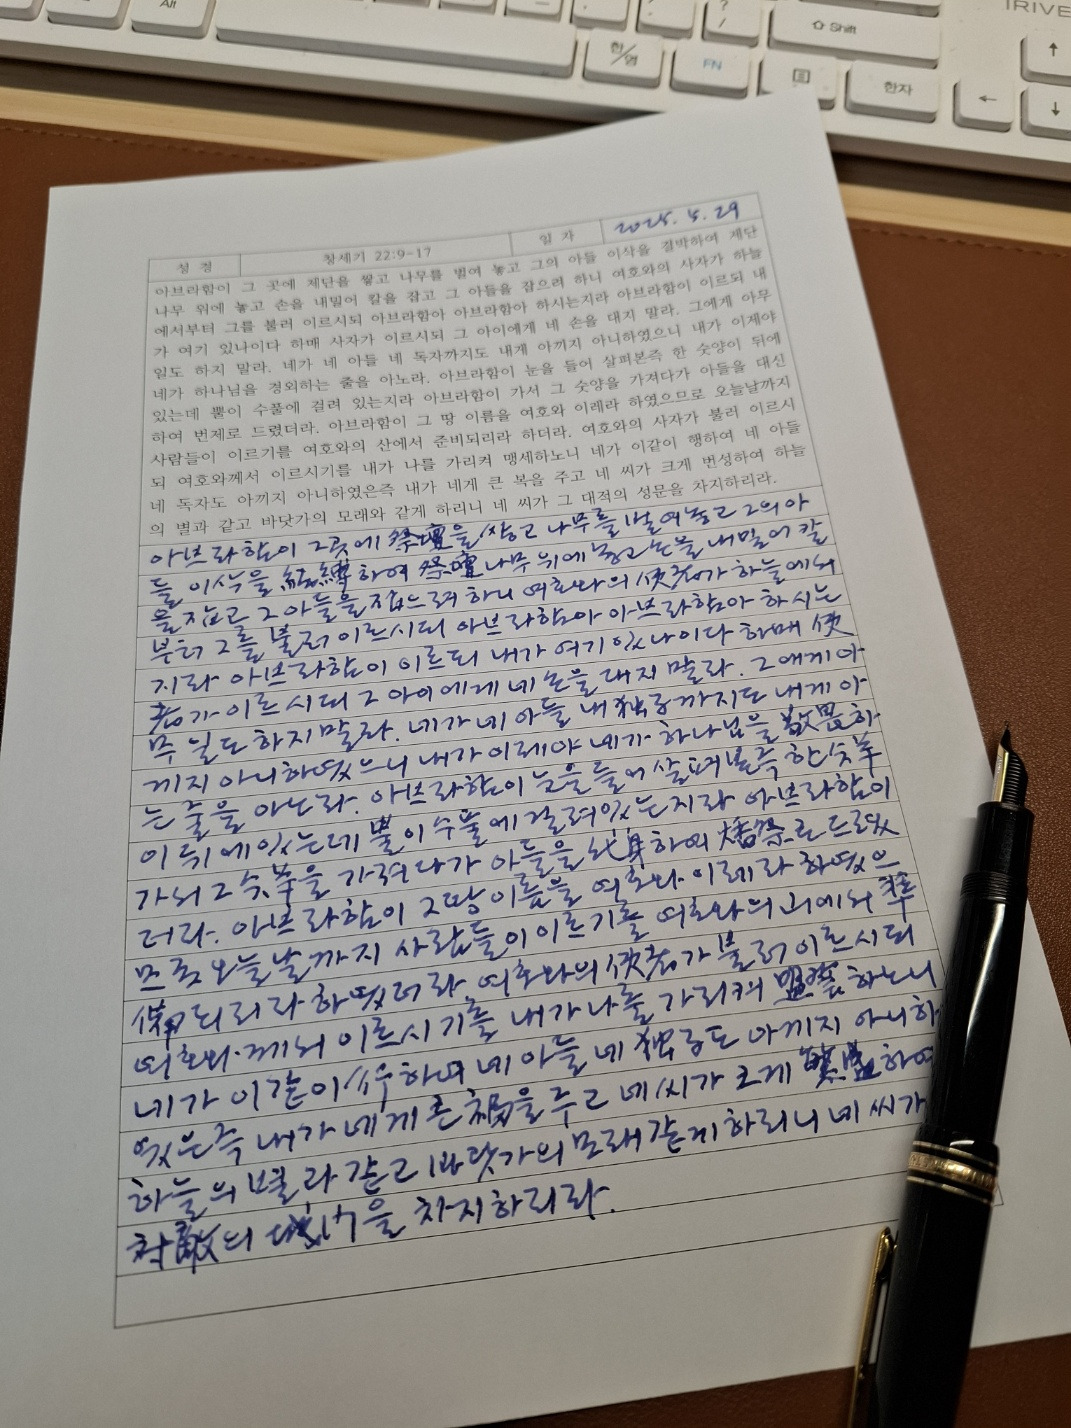 Alt
?
/
⇧ Shift
IRIVE
한/영
FN
한자
↑
←
↓
성 경 창세기 22:9-17 일 자 2025. 5. 29
아브라함이 그 곳에 제단을 쌓고 나무를 벌여 놓고 그의 아들 이삭을 결박하여 제단
나무 위에 놓고 손을 내밀어 칼을 잡고 그 아들을 잡으려 하니 여호와의 사자가 하늘
에서부터 그를 불러 이르시되 아브라함아 아브라함아 하시는지라 아브라함이 이르되 내
가 여기 있나이다 하매 사자가 이르시되 그 아이에게 네 손을 대지 말라. 그에게 아무
일도 하지 말라. 네가 네 아들 네 독자까지도 내게 아끼지 아니하였으니 내가 이제야
네가 하나님을 경외하는 줄을 아노라. 아브라함이 눈을 들어 살펴본즉 한 숫양이 뒤에
있는데 뿔이 수풀에 걸려 있는지라 아브라함이 가서 그 숫양을 가져다가 아들을 대신
하여 번제로 드렸더라. 아브라함이 그 땅 이름을 여호와 이레라 하였으므로 오늘날까지
사람들이 이르기를 여호와의 산에서 준비되리라 하더라. 여호와의 사자가 불러 이르시
되 여호와께서 이르시기를 내가 나를 가리켜 맹세하노니 네가 이같이 행하여 네 아들
네 독자도 아끼지 아니하였은즉 내가 네게 큰 복을 주고 네 씨가 크게 번성하여 하늘
의 별과 같고 바닷가의 모래와 같게 하리니 네 씨가 그 대적의 성문을 차지하리라.
아브라함이 그곳에 祭壇을 쌓고 나무를 벌여놓고 그의 아
들 이삭을 結縛하여 祭壇 나무 위에 놓고 손을 내밀어 칼
을 잡고 그 아들을 잡으려 하니 여호와의 使者가 하늘에서
부터 그를 불러 이르시되 아브라함아 아브라함아 하시는
지라 아브라함이 이르되 내가 여기 있나이다 하매 使
者가 이르시되 그 아이에게 네 손을 대지 말라. 그에게 아
무 일도 하지 말라. 네가 네 아들 네 独子까지도 내게 아
끼지 아니하였으니 내가 이제야 네가 하나님을 敬畏하
는 줄을 아노라. 아브라함이 눈을 들어 살펴본즉 한 숫羊
이 뒤에 있는데 뿔이 수풀에 걸려있는지라 아브라함이
가서 그 숫羊을 가져다가 아들을 代身하여 燔祭로 드렸
더라. 아브라함이 그 땅 이름을 여호와 이레라 하였으
므로 오늘날까지 사람들이 이르기를 여호와의 에서 準
備되리라 하였더라 여호와의 使者가 불러 이르시되
여호와께서 이르시기를 내가 나를 가리켜 盟誓하노니
네가 이같이 行하여 네 아들 네 独子도 아끼지 아니하
였은즉 내가 네게 큰 福을 주고 네 씨가 크게 繁盛하여
하늘의 별과 같고 바닷가의 모래 같게 하리니 네 씨가
對敵의 城門을 차지하리라.